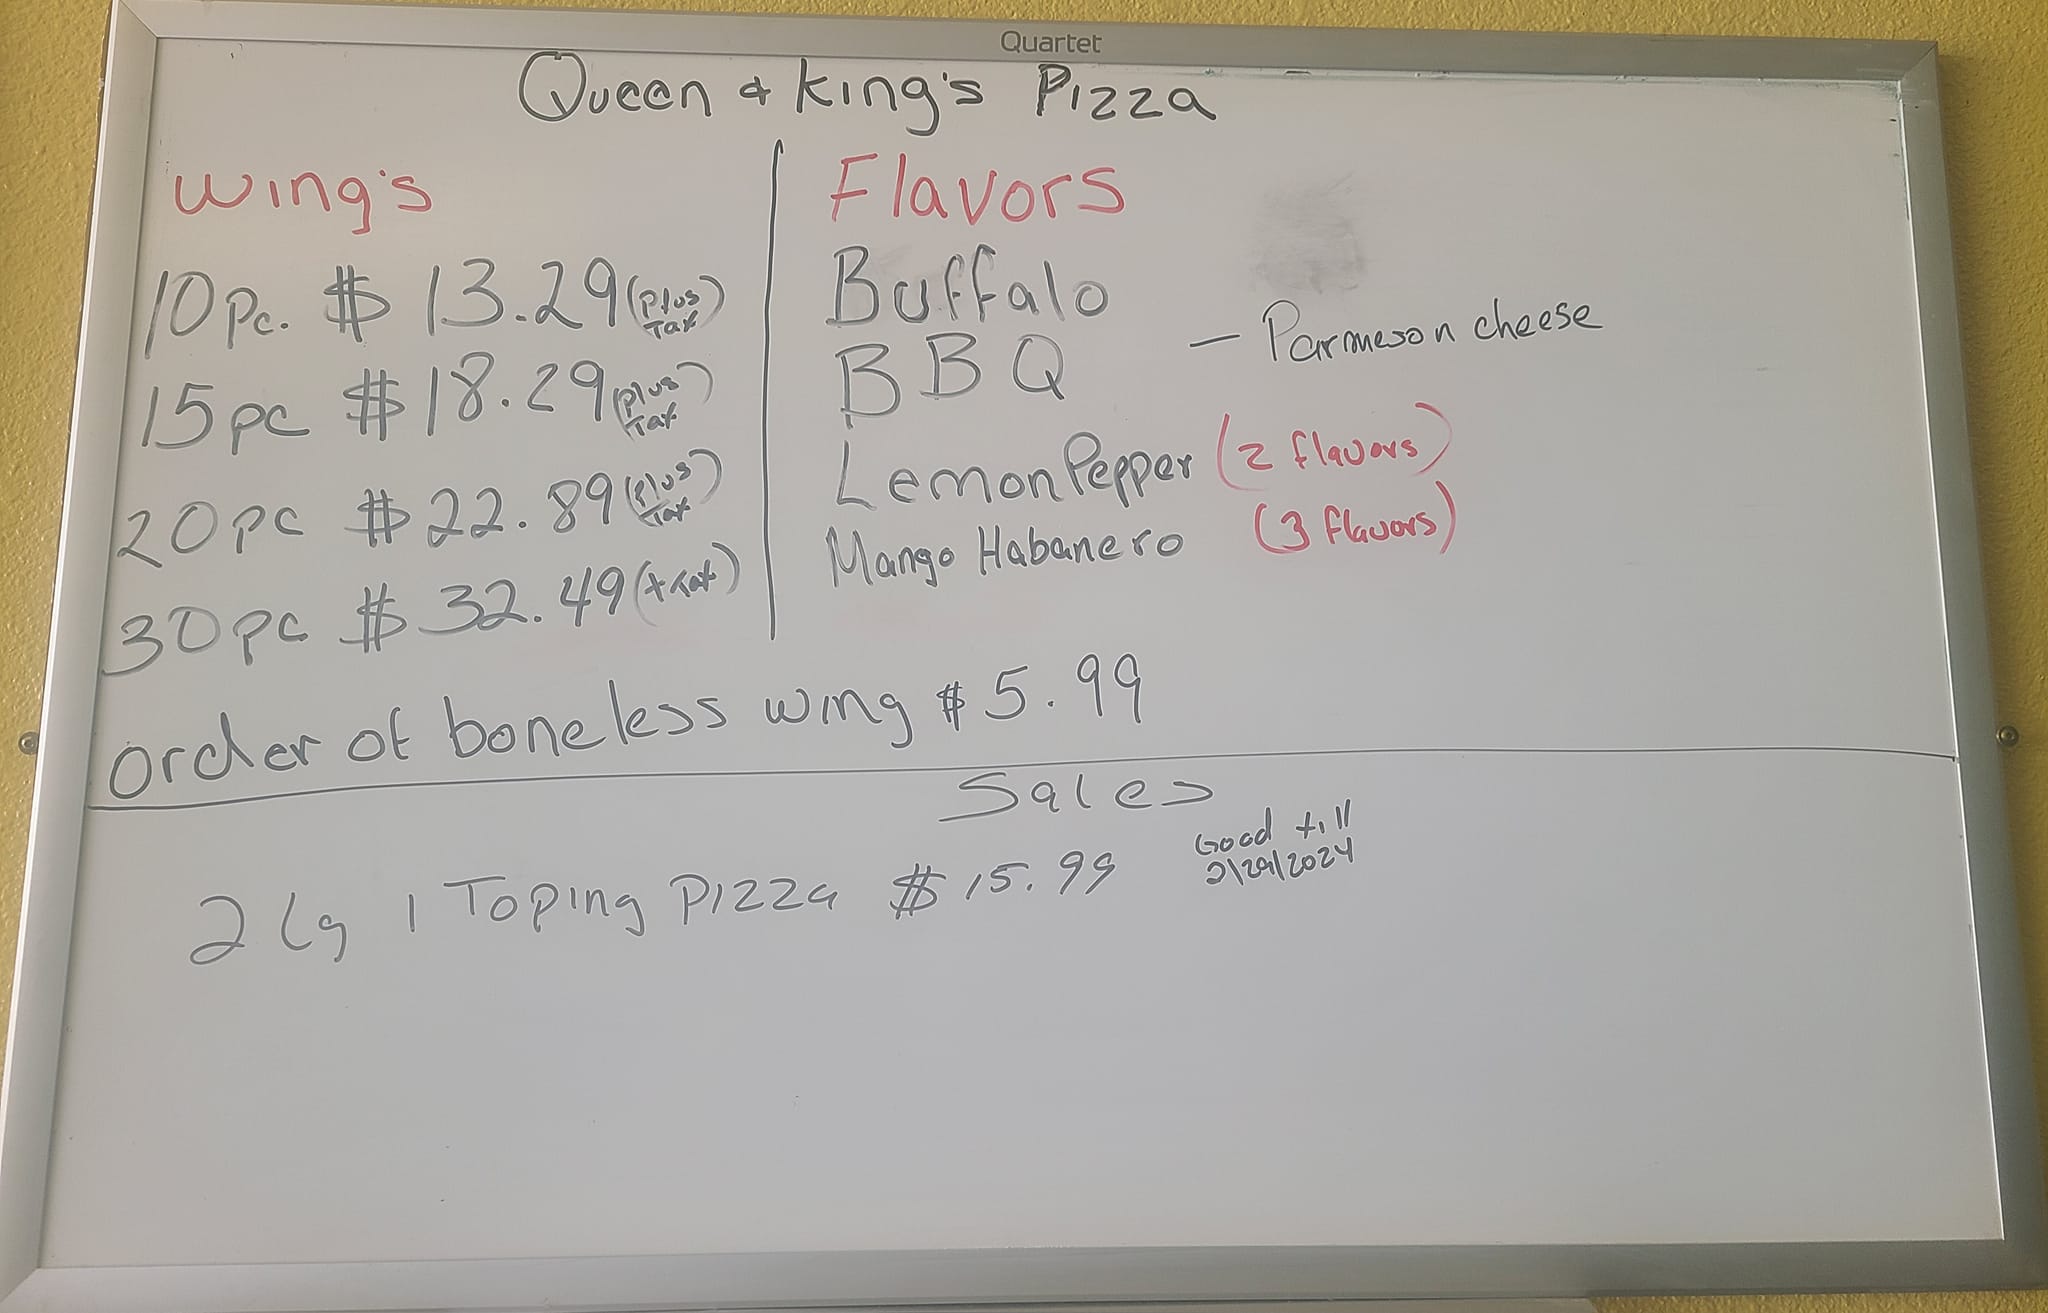 Quartet
Queen & King's Pizza
Wing's
10 pc. $ 13.29 (plus Tax)
15 pc $ 18.29 (plus Tax)
20 pc $ 22.89 (plus Tax)
30 pc $ 32.49 (+ Tax)
Flavors
Buffalo
BBQ
– Parmeson cheese
Lemon Pepper (2 flavors)
Mango Habanero (3 flavors)
order of boneless wing $ 5.99
Sales
2 Lg 1 Toping Pizza $ 15.99
Good till
2/29/2024